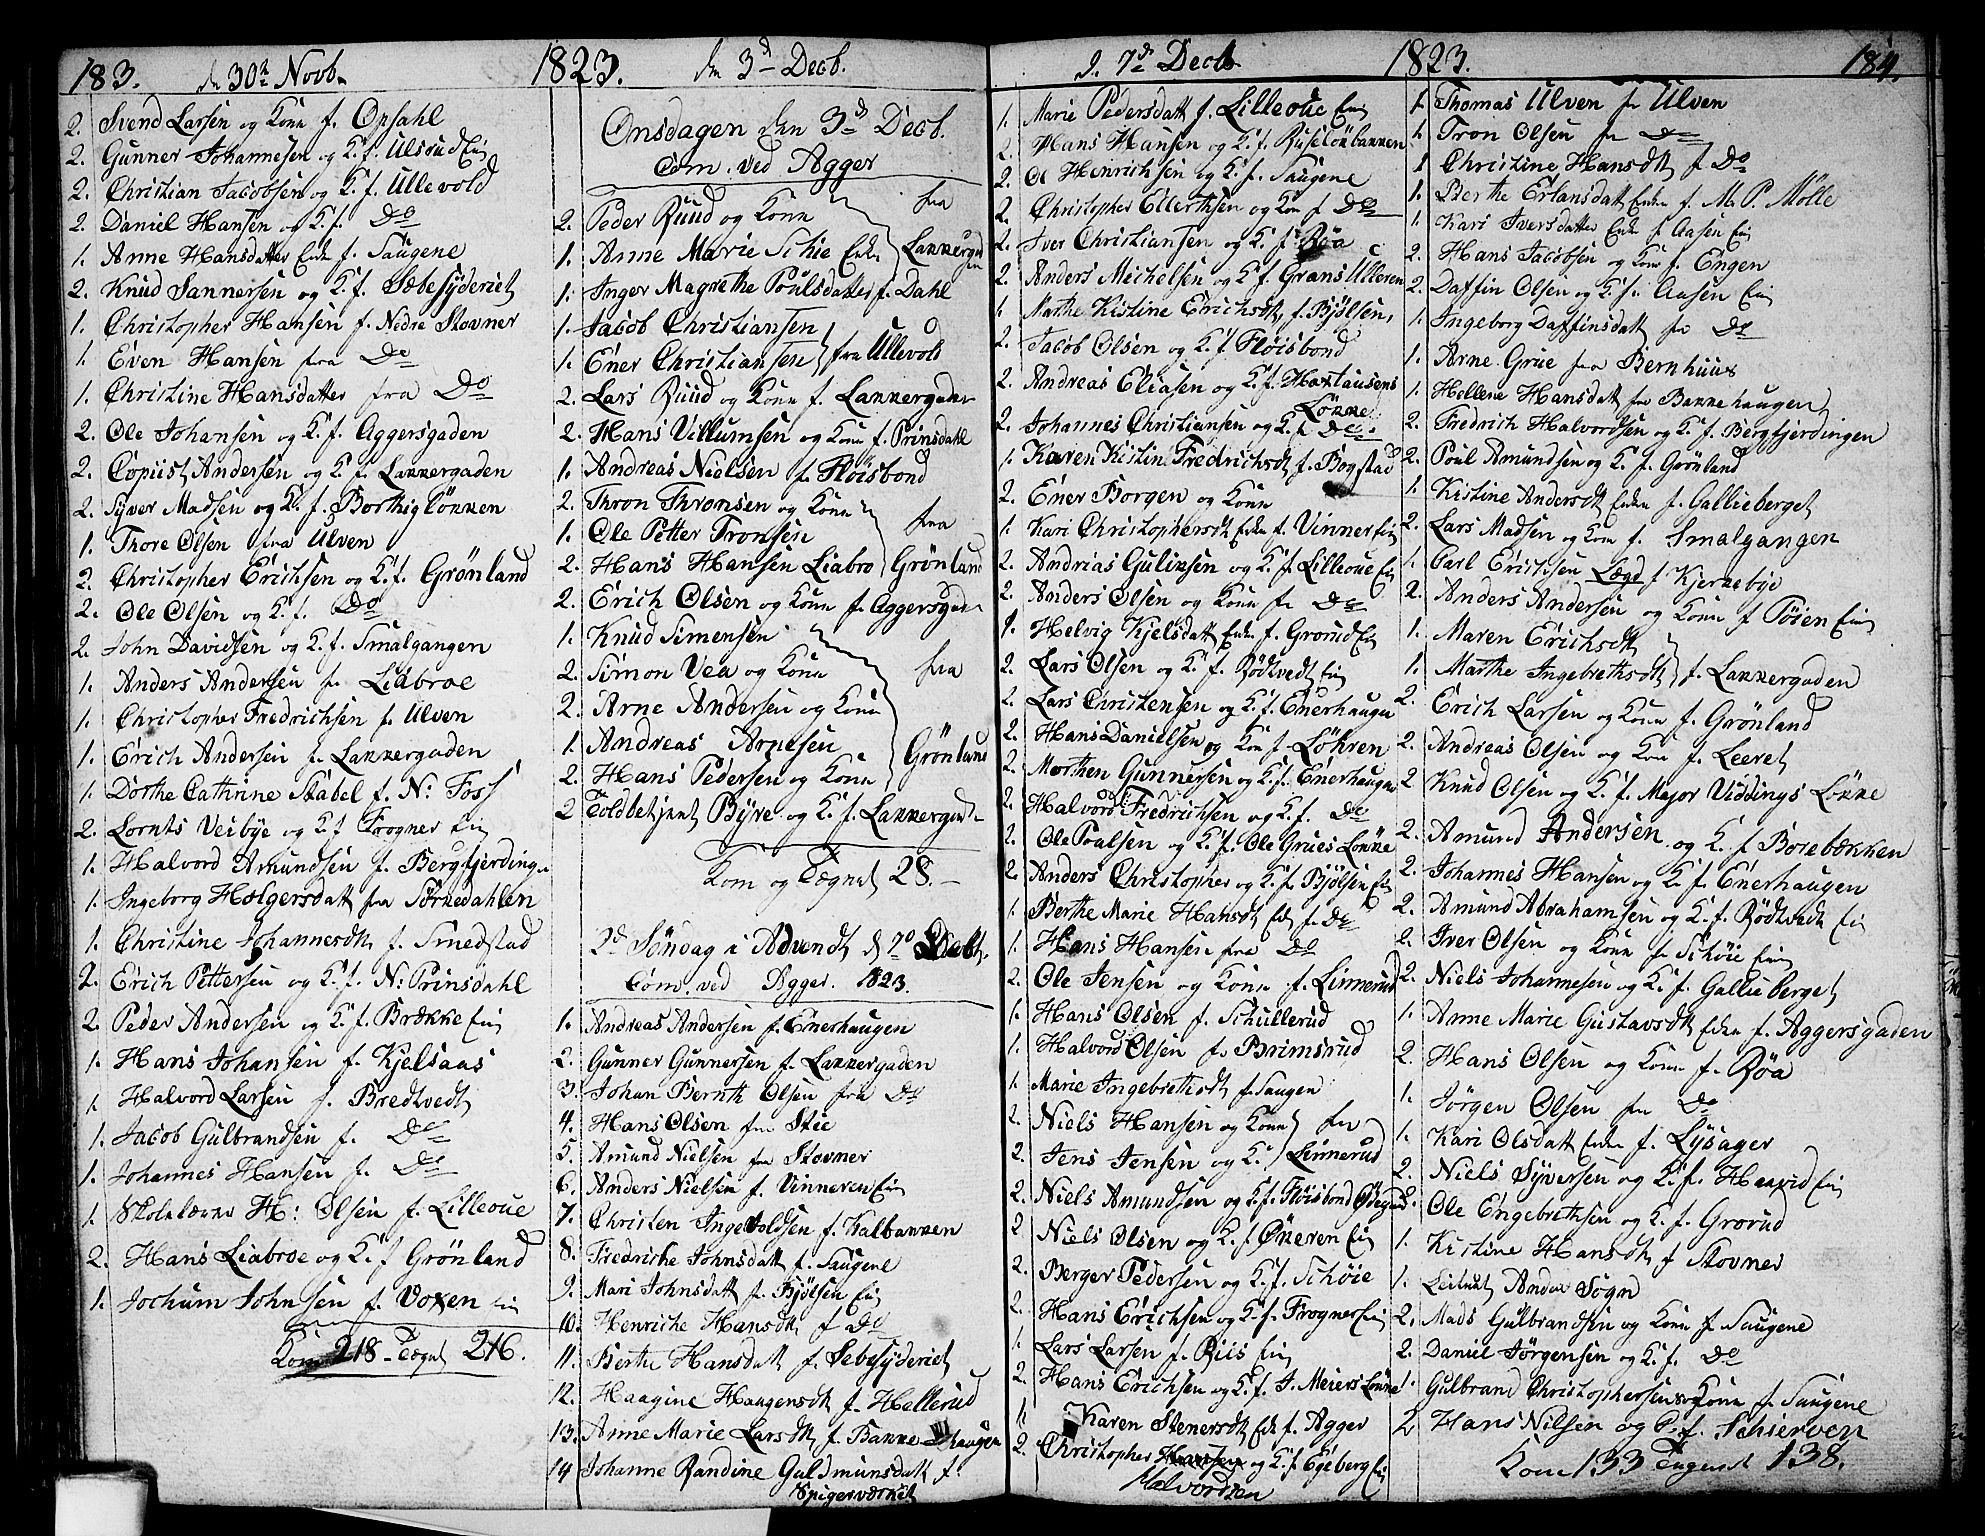 183. d 30te Novb. 1823. d 3d Decb.
2. Svend Larsen og Kone f. Opsahl
2. Gunner Johannesen og K. f. Ulsrud Ei
2. Christian Jacobsen og K. f. Ullevold
2. Daniel Hansen og K. f. Do
1. Anne Hansdatter Enke f. Saugene
2. Knud Sannersen og K. f. Sæbesyderiet
1. Christopher Hansen f. Nedre Stovner
1. Even Hansen fra Do
1. Christine Hansdatter fra Do
2. Ole Johansen og K. f. Aggersgaden
2. Copiist Andersen og K. f. Lakkergaden
2. Syver Madsen og K. f. Borthiglökken
1. Thore Olsen fra Ulven
2. Christopher Erichsen og K. f. Grönland
2. Ole Olsen og K. f. Do
2. John Davidsen og K. f. Smalgangen
1. Anders Andersen f. Liabroe
1. Christopher Fredrichsen f. Ulven
1. Erich Andersen f. Lakkergaden
1. Dorthe Cathrine Stabel f. N: Foss
2. Lornts Veibye og K. f Frogner Ei
1. Halvord Amundsen f. Bergfjerding
1. Ingeborg Holgersdatt fra Sörkedahlen
1. Christine Johannesdt f. Smedstad
2. Erich Pettersen og K. f. N: Prinsdahl
2. Peder Andersen og K. f. Brække Ei
1. Hans Johansen f. Kjelsaas
1. Halvord Larsen f. Bredtvedt
1. Jacob Gulbrandsen f. Do
1. Johannes Hansen f. Do
1. Skolelærer H: Olsen f. Lilleoue
2. Hans Liabroe og K. f Grönland
1. Jochum Johnsen f. Voxen Ei
Kom 218 Tegnet 216.
Onsdagen den 3d Decb.
Com. ved Agger
2. Peder Ruud og Kone fra
1. Anne Marie Schie Enke Lakkergaden
1. Inger Magrethe Poulsdatter f. Dahl
1. Jacob Christiansen
1. Ener Christiansen fra Ullevold
2. Lars Ruud og Kone f. Lakkergaden
2. Hans Villumsen og Kone f. Prinsdahl
1. Andreas Nielsen f. Flöisbond
2. Thron Thronsen og Kone fra
1. Ole Petter Tronsen
2. Hans Hansen Liabro Grönland
2. Erich Olsen og Kone f. Aggersgaden
1. Knud Simensen
2. Simon Vea og Kone fra
2. Arne Andersen og Kone
1. Andreas Arnesen Grönland
2. Hans Pedersen og Kone
2 Toldbetjent Byre og K. f. Lakkergad
Kom og Tegnet 28.
2d Söndag i Advendt d 7de Decbr.
Com. ved Agger. 1823.
1. Andreas Andersen f. Enerhaugen
2. Gunner Gunnersen f. Lakkergaden
3. Johan Bernth Olsen fra Do
4. Hans Olsen fra Stie
5. Amund Nielsen fra Stovner
6. Anders Nielsen f. Vinneren Ei
7. Christen Ingevoldsen f. Kalbakken
8. Fredriche Johnsdatt f. Saugene
9. Mari Johnsdatt f. Bjölsen Ei
10. Henriche Hansdt f Do
11. Berthe Hansdatt f. Sebesyderiet
12. Haagine Haagensdt f. Hellerud
13. Anne Marie Larsdt f. Bakkehaugen
14 Johanne Randine Guldmunsdatt f.
Spigerværket
d. 7de Decb 1823. 184.
1. Marie Pedersdatt f. Lilleoue Ei
2. Hans Hansen og K. f. Ruselökbakken
2. Ol Heinrichsen og K. f. Saugene
2. Christopher Ellerthsen og Kone f Do
2. Iver Christiansen og K. f. Röa
2. Anders Michelsen og K. f. Grans Ulleren
1. Marthe Kistine Erichsdt f. Bjölsen,
2. Jacob Olsen og K. f. Flöisbond
2. Andreas Eliasen og K. f. Haxtausens Lökke
2. Johannes Christiansen og K. f. Do
1. Karen Kistin Fredrichsdt f. Bogstad
2. Ener Borgen og Kone
1. Kari Christophersdt Enke f. Vinner Ei
2. Andrias Guliksen og K. f. Lilleoue Ei
2. Anders Olsen og Kone fr Do
1. Helvig Kjelsdatt Enke f. Grorud Ei
2. Lars Olsen og K. f. Rödtvedt Ei
2. Lars Christensen og K. f. Enerhaugen
2. Hans Danielsen og Kon f. Löhren
2. Morthen Gunnersen og K. f. Enerhaugen
2. Halvord Fredrichsen og K. f. Do
2. Ole Poulsen og K. f. Ole Grues Lökke
2. Anders Christopher og K. f. Bjölsen Ei
1. Berthe Marie Hansdt Enk f. Do
1. Hans Hansen fra Do
2. Ole Jensen og Kone f. Linnerud
1. Hans Olsen f. Schullerud
1. Halvord Olsen fr Brimsrud
1. Marie Ingebrethsdt f. Saugen
2. Niels Hansen og Kone fra
2. Jens Jensen og K. Linnerud
2. Niels Amundsen og K. f. Flöisbond Ödegaard
2. Niels Olsen og K. f Ökeren Ei
2. Berger Pedersen og K. f. Schöie
2. Hans Erichsen og K. f. Frogner Ei
1. Lars Larsen f. Riis Ei
2. Hans Erichsen og K. f. J. Meiers Lökke
1. Karen Stenersdt Enk f. Agger
2. Christopher Hansen og K. f. Egeberg Ei
Halvordsen
1. Thomas Ulven fr Ulven
1. Tron Olsen fr Do
1 Christine Hansdt f Do
1. Berthe Erlansdatt Enke f. M. P. Mölle
1. Kari Iversdatter Enk f Aasen Ei
2. Hans Jacobsen og Kone f Engen
2. Daffin Olsen og K. f. Aasen Ei
1. Ingeborg Daffinsdatt fr Do
1. Arne Grue fra Bernhuus
1. Hellene Hansdatt fra Bakkehaugen
2. Fredrich Halvordsen og K. f Bergfjerdingen
2. Poul Amundsen og K. f. Grönland
1. Kistine Andersdt Enke f. Gallieberget
2. Lars Madsen og Kone f. Smalgangen
1. Carl Erichsen Lægd f Kjerkebye
2. Anders Andersen og Kone f Töien Ei
1. Maren Erichsdt
1. Marthe Ingebrethsdt f. Lakkergaden
2. Erich Larsen og Kone f. Grönland
2. Andreas Olsen og Kone f. Leeret
2 Knud Olsen og K. f. Major Viddings Lökke
2. Amund Andersen og K. f Borebækken
2. Johannes Hansen og K. f. Enerhaugen
2. Amund Abrahamsen og K. f. Rödtvedt Ei
2. Iver Olsen og Kone f. Schöie Ei
2. Niels Johannesen og K. f. Gallieberget
1. Anne Marie Gustavsdt Enke f. Aggersgaden
2. Hans Olsen og Kone f. Röa
1. Jörgen Olsen fra Do
1. Kari Olsdatt Enke f. Lysager
2. Niels Syversen og K. f. Haavid Ei
2. Ole Engebrethsen og K. f. Grorud
1. Kistine Hansdt f Stovner
1. Leitnt Anden Sogn
2. Mads Gulbrandsen og Kone f Saugene
2. Daniel Jörgensen og K. f. Do
1. Gulbrand Christophersen og Kone f. Saugene
2 Hans Nilsen og K. f. Schierven
Kom 133 Tegnet 138.